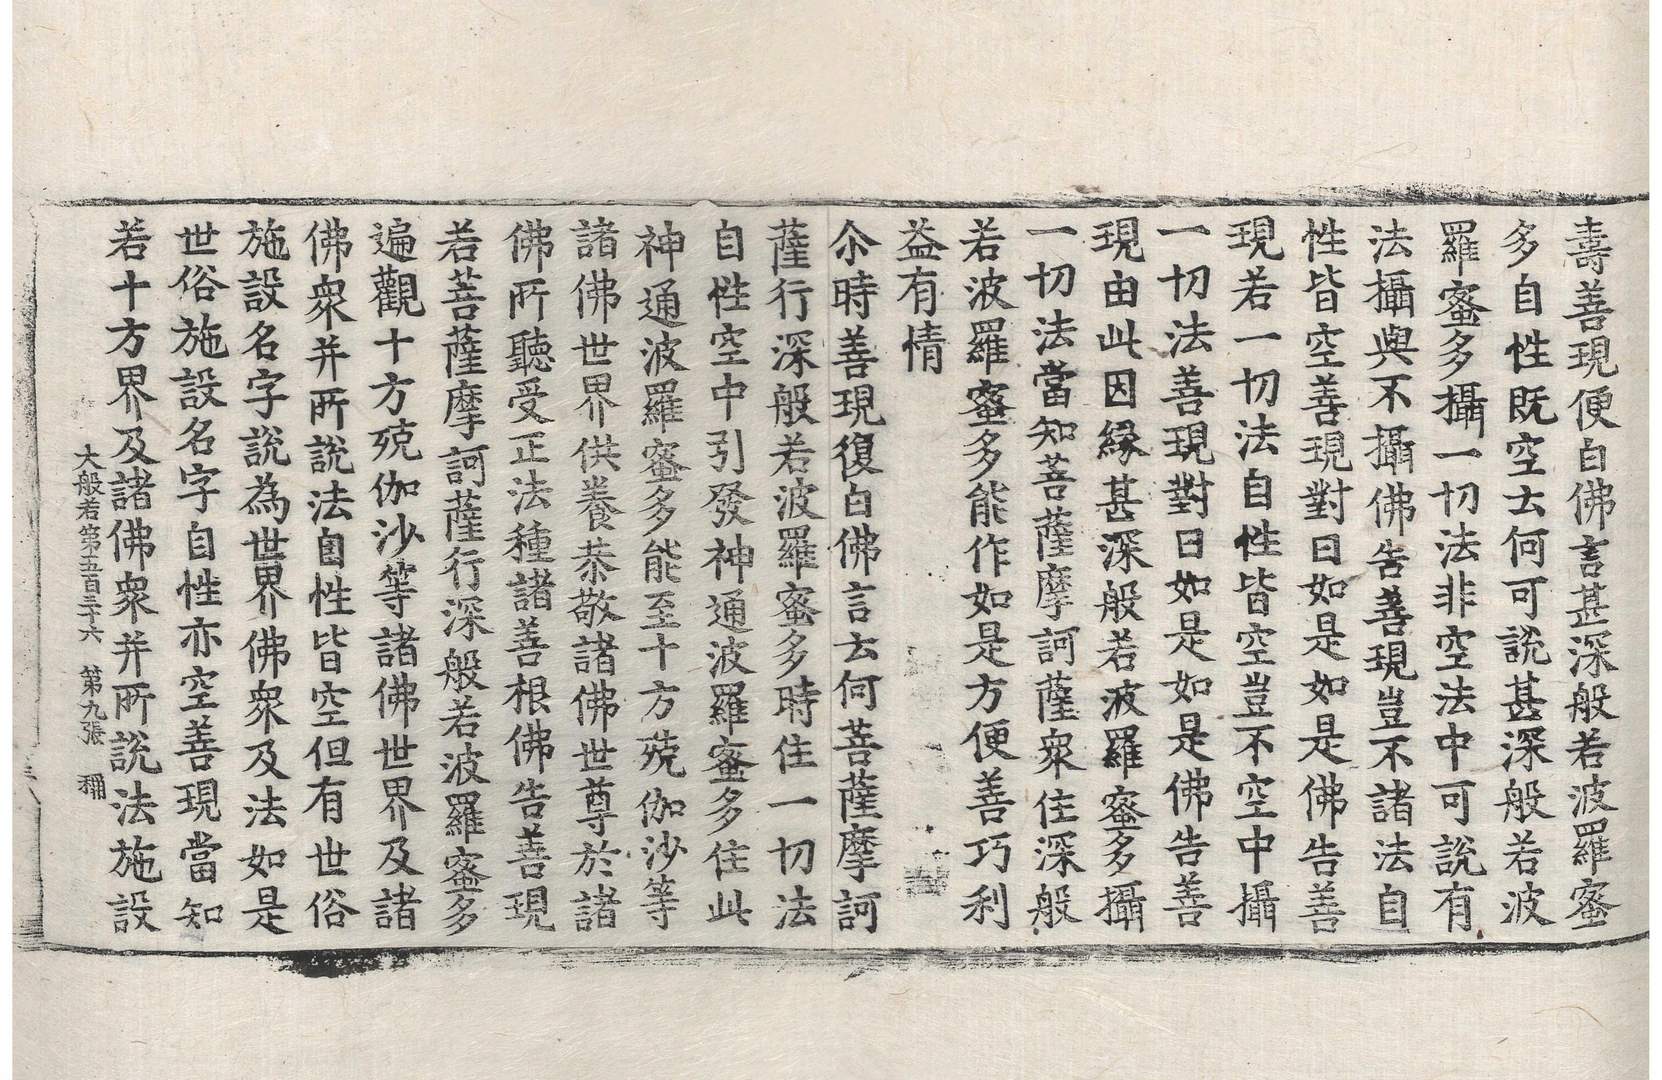 壽善現便白佛言甚深般若波羅蜜
多自性既空云何可說甚深般若波
羅蜜多攝一切法非空法中可說有
法攝與不攝佛告善現豈不諸法自
性皆空善現對曰如是如是佛告善
現若一切法自性皆空豈不空中攝
一切法善現對曰如是如是佛告善
現由此因縁甚深般若波羅蜜多攝
一切法當知菩薩摩訶薩衆住深般
若波羅蜜多能作如是方便善巧利
益有情
尒時善現復白佛言云何菩薩摩訶
薩行深般若波羅蜜多時住一切法
自性空中引發神通波羅蜜多住此
神通波羅蜜多能至十方殑伽沙等
諸佛世界供養恭敬諸佛世尊於諸
佛所聽受正法種諸善根佛告善現
若菩薩摩訶薩行深般若波羅蜜多
遍觀十方殑伽沙等諸佛世界及諸
佛衆并所說法自性皆空但有世俗
施設名字說為世界佛衆及法如是
世俗施設名字自性亦空善現當知
若十方界及諸佛衆并所說法施設
大般若第五百三十六 第九張 稱